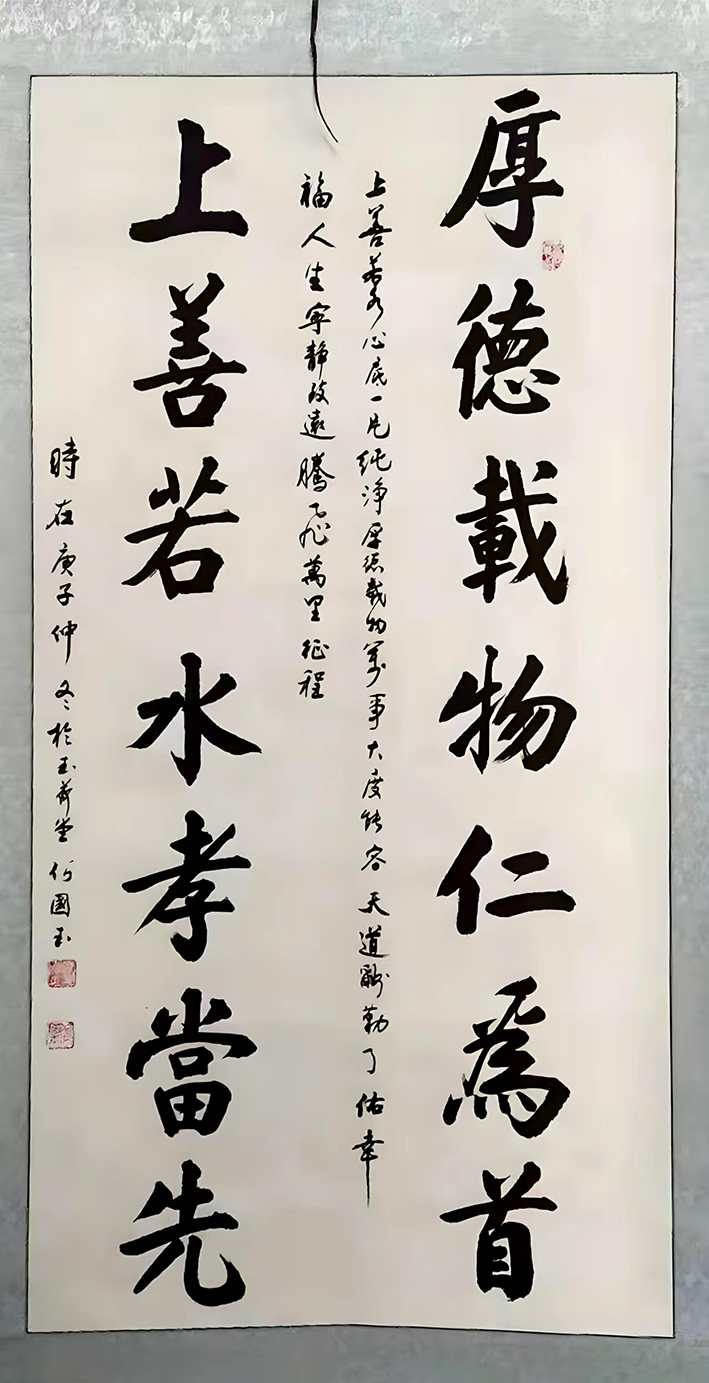 厚德載物仁爲首
上善若水心底一片純淨厚德載物萬事大度能容天道酬勤了佑幸
福人生寧靜致遠騰飛萬里征程
上善若水孝當先
時在庚子仲冬於玉荷堂何國玉